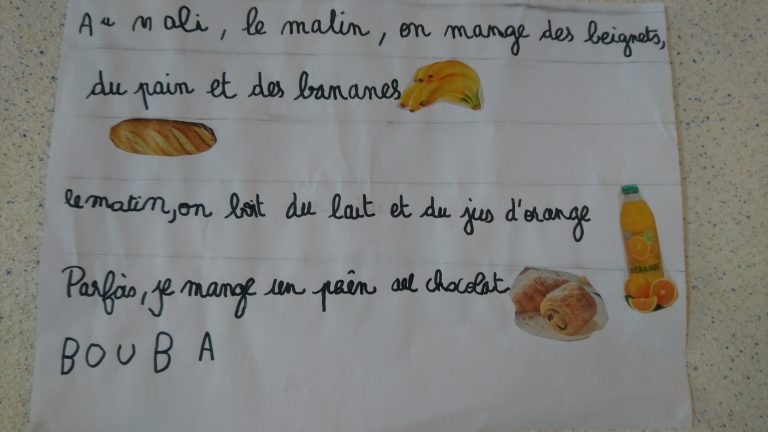 Au mali, le matin, on mange des beignets,
du pain et des bananes
le matin, on boit du lait et du jus d'orange
ORANGE
Parfois, je mange un pain au chocolat
BOUBA